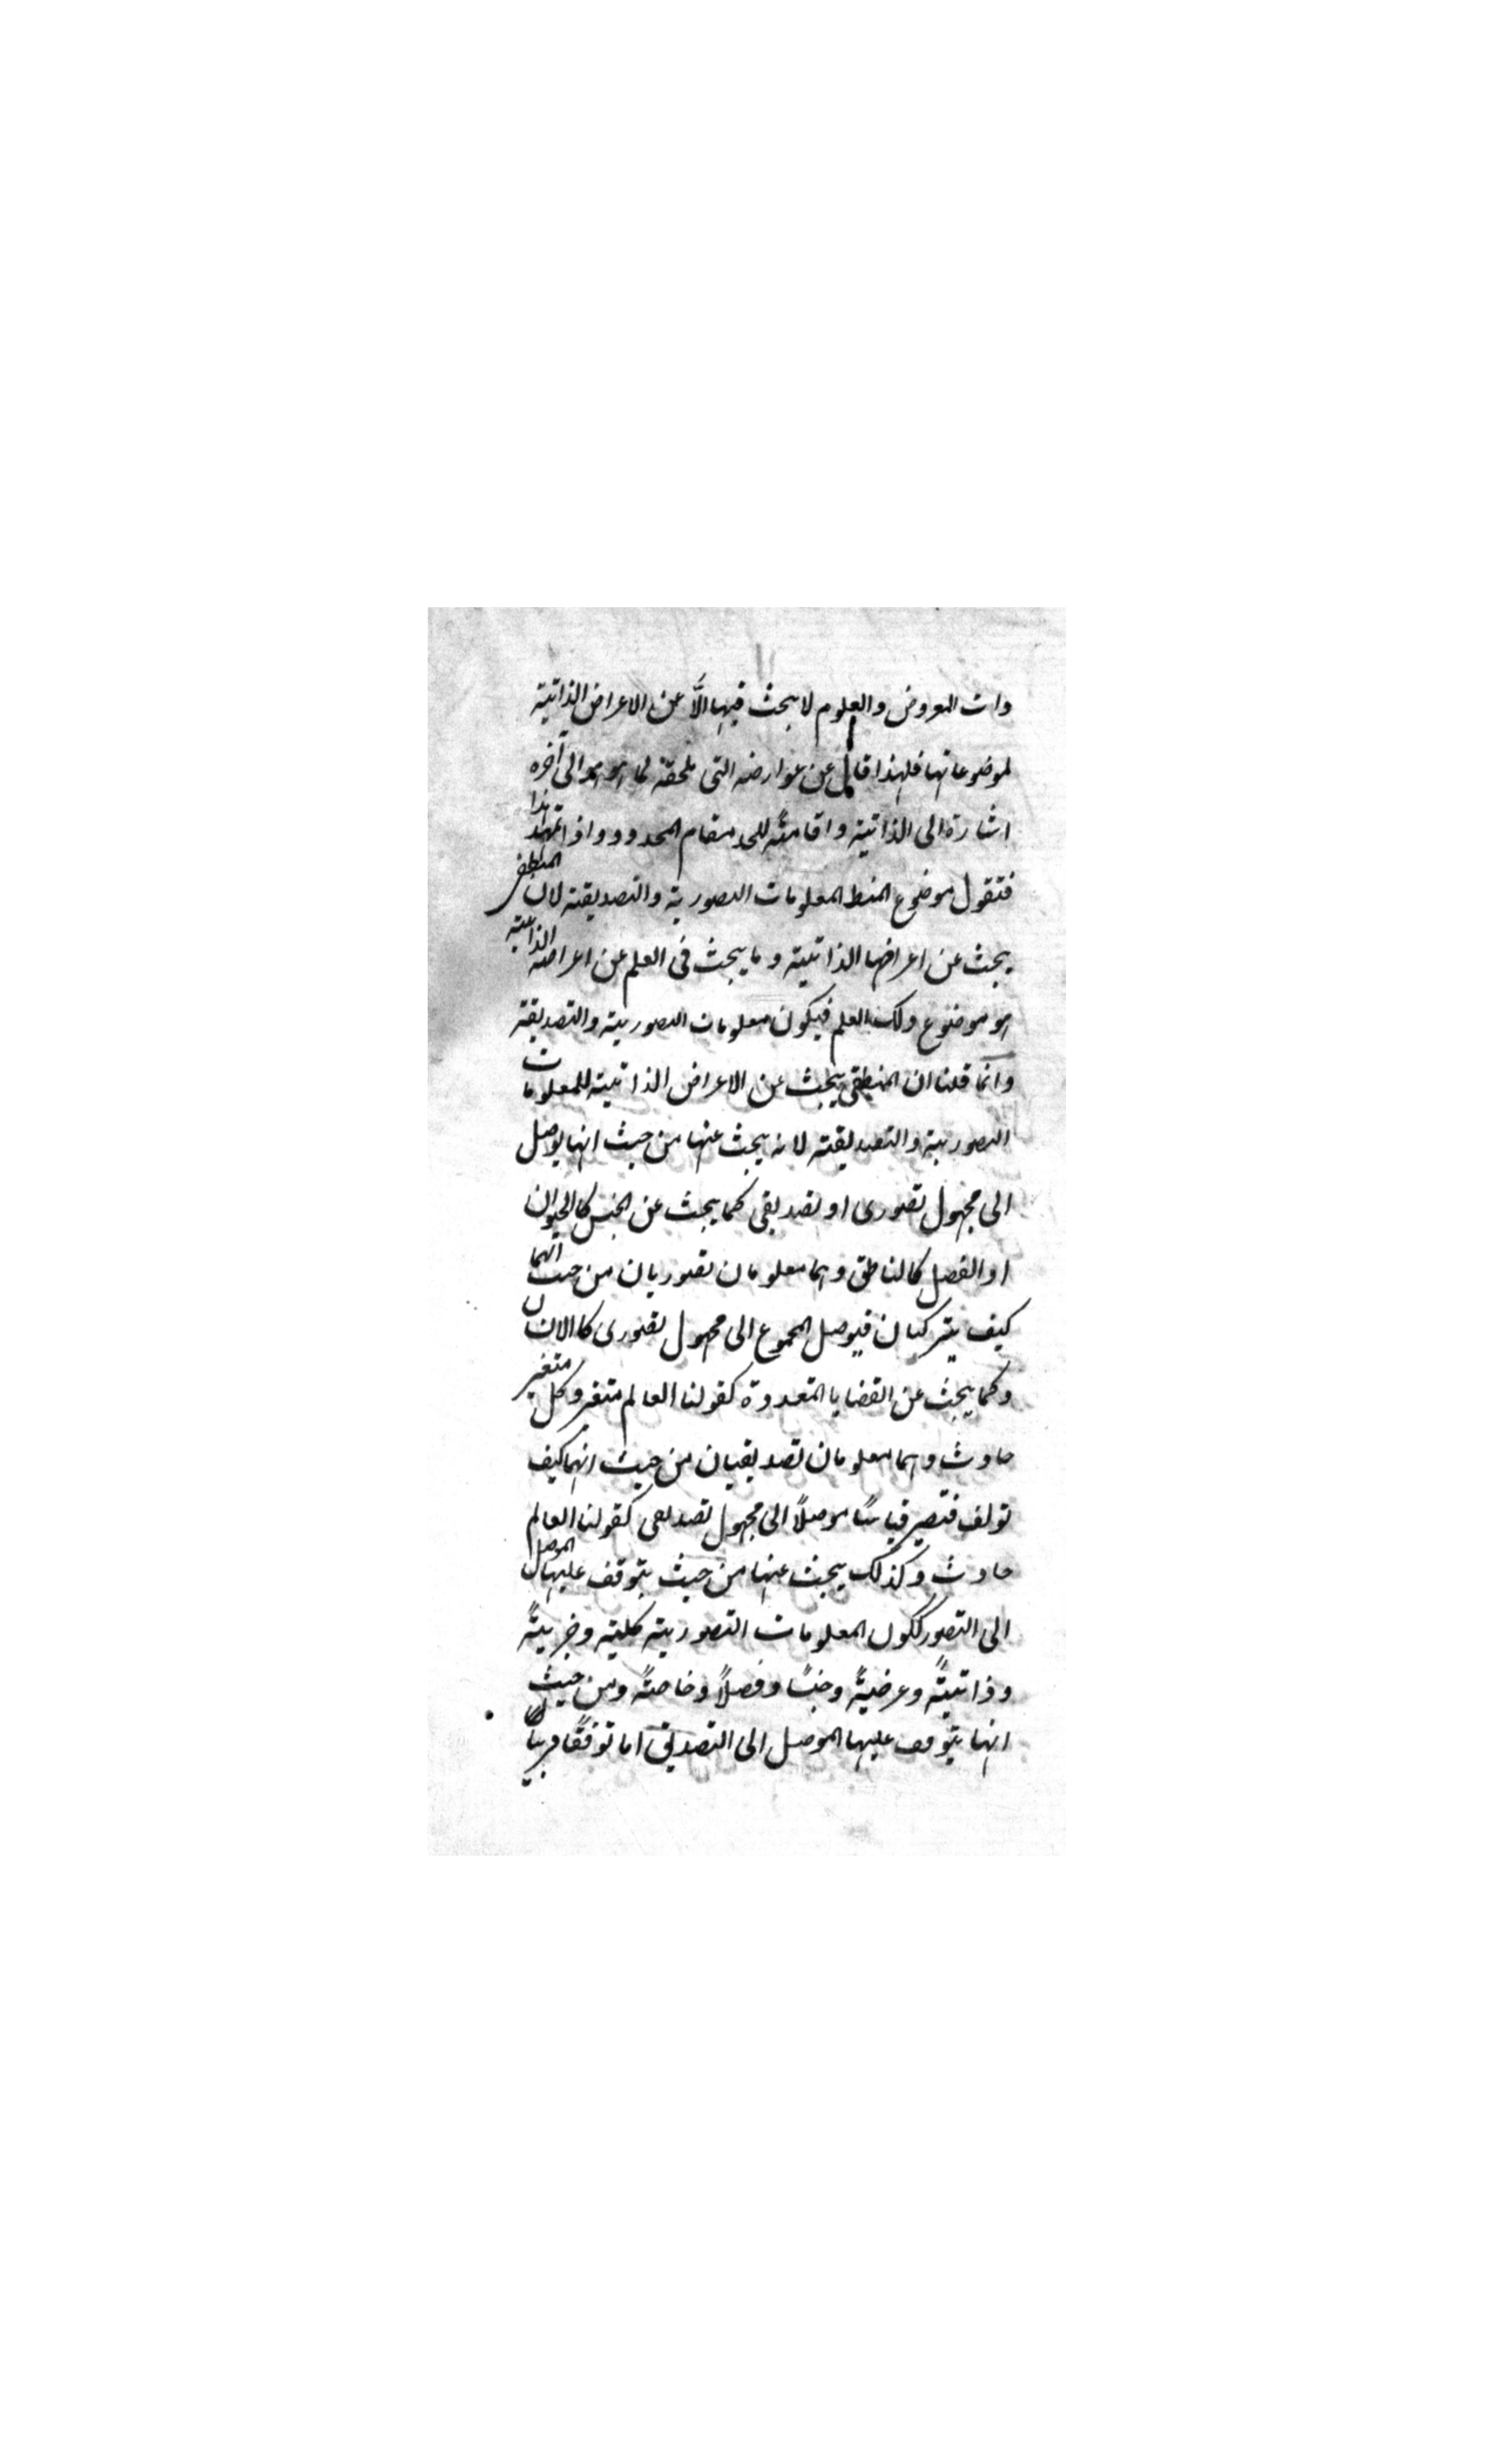 ذات المعروض والعلوم لا يبحث فيها الَّا عن الاعراض الذاتية
لموضوعاتها فلهذا قال عن عوارضه التى تلحقه لما هو هو الى آخره
اشارة الى الذاتية واقامةً للحد مقام المحدود واذا تمهد هذا
فتقول موضوع المنط المعلومات التصورية والتصديقية لان المنطقى
يبحث عن اعراضها الذاتية وما يبحث فى العلم عن اعراضه الذاتية
هو موضوع ذلك العلم فيكون معلومات التصورية والتصديقية
وانما قلنا ان المنطقى يبحث عن الاعراض الذاتية للمعلومات
التصورية والتصديقية لانه يبحث عنها من حيث انها يوصل
الى مجهول تصورى او تصديقى كما يبحث عن الجنس كالحيوان
او الفصل كالناطق وهما معلومان تصوريان من حيث انهما
كيف يتركبان فيوصل المجموع الى مجهول تصورى كالانسان
وكما يبحث عن القضايا المتعددة كقولنا العالم متغير وكل متغير
حادث وهما معلومان تصديقيان من حيث انهما كيف
تولف فتصير قياسًا موصلًا الى مجهول تصديقى كقولنا العالم
حادث وكذلك يبحث عنها من حيث يتوقف عليها الموصل
الى التصور ككون المعلومات التصورية كلية وجزييةً
وذاتيةً وعرضيةً وجنسًا وفصلًا وخاصةً ومن حيث
انها يتوقف عليها الموصل الى التصديق اما توقفًا قريبًا